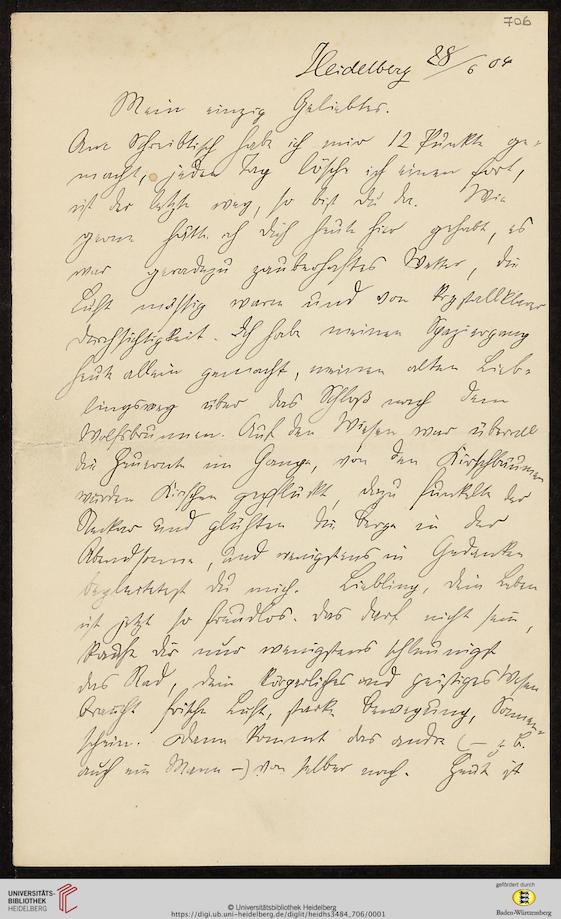 706
Heidelberg 28/6 04
Mein einzig Geliebter.
Am Schreibtisch habe ich mir 12 Punkte ge-
macht, jeden Tag lösche ich einen fort,
ist der letzte weg, so bist du da. Wie
gerne hätte ich dich heute hier gehabt, es
war geradezu zauberhaftes Wetter, die
Luft mässig warm und von krystallklarer
Durchsichtigkeit. Ich habe meinen Spaziergang
heute allein gemacht, meinen alten Lieb-
lingsweg über das Schloß nach dem
Wolfsbrunnen. Auf den Wiesen war überall
die Heuernte im Gange, von den Kirschbäumen
wurden Kirschen gepflückt, dazu funkelte der
Neckar und glühten die Berge in der
Abendsonne, und wenigstens in Gedanken
begleitetest du mich. Liebling, dein Leben
ist jetzt so freudlos. das darf nicht sein,
kaufe dir nur wenigstens schleunigst
das Rad, dein körperliches und geistiges Wesen
braucht frische Luft, starke Bewegung, Sonnen-
schein. Dann kommt das andre (– z. B.
auch ein Mann –) von selber nach. Heut ist
UNIVERSITÄTS-
BIBLIOTHEK
HEIDELBERG
© Universitätsbibliothek Heidelberg
https://digi.ub.uni-heidelberg.de/diglit/heidhs3484_706/0001
gefördert durch
Baden-Württemberg